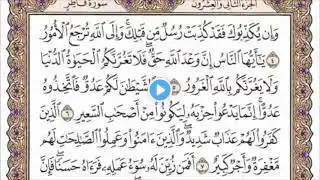 الجزء الثاني والعشرون سورة فاطر
وَإِن يُكَذِّبُوكَ فَقَدْ كُذِّبَتْ رُسُلٌ مِّن قَبْلِكَ ۚ وَإِلَى اللَّهِ تُرْجَعُ الْأُمُورُ
٤ يَا أَيُّهَا النَّاسُ إِنَّ وَعْدَ اللَّهِ حَقٌّ ۖ فَلَا تَغُرَّنَّكُمُ الْحَيَاةُ الدُّنْيَا
وَلَا يَغُرَّنَّكُم بِاللَّهِ الْغَرُورُ ٥ الشَّيْطَانَ لَكُمْ عَدُوٌّ فَاتَّخِذُوهُ
عَدُوًّا ۚ إِنَّمَا يَدْعُو حِزْبَهُ لِيَكُونُوا مِنْ أَصْحَابِ السَّعِيرِ ٦ الَّذِينَ
كَفَرُوا لَهُمْ عَذَابٌ شَدِيدٌ ۖ وَالَّذِينَ آمَنُوا وَعَمِلُوا الصَّالِحَاتِ لَهُم
مَّغْفِرَةٌ وَأَجْرٌ كَبِيرٌ ٧ أَفَمَن زُيِّنَ لَهُ سُوءُ عَمَلِهِ فَرَآهُ حَسَنًا ۖ فَإِنَّ